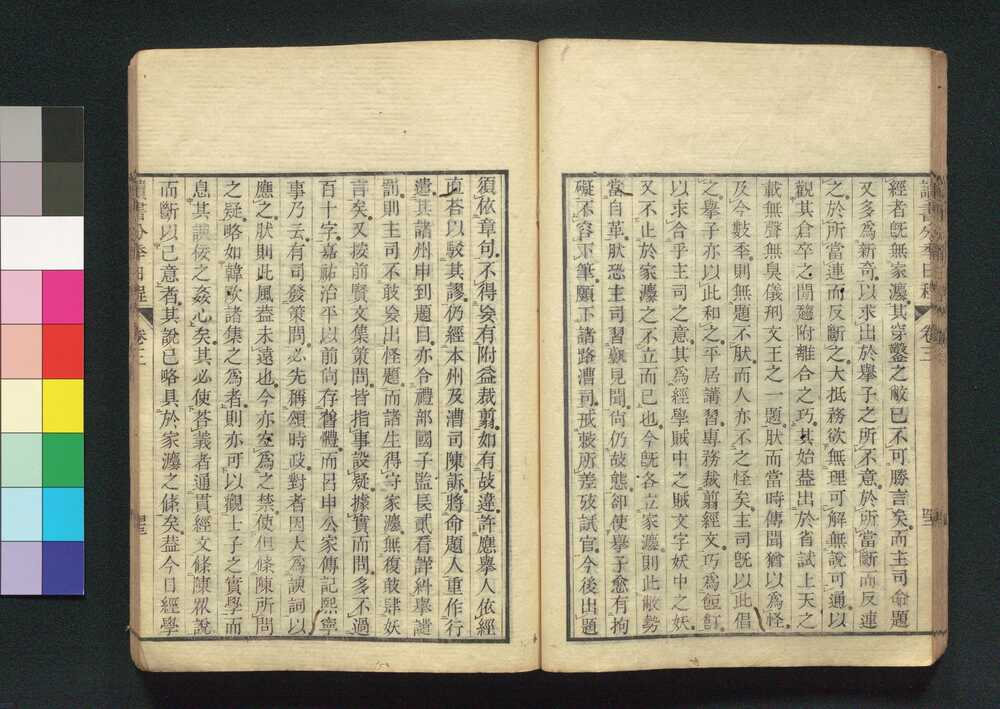 讀書分秊日程　卷三
經者旣無家灋其穿鑿之敝已不可勝言矣而主司命題
又多爲新奇以求出於擧子之所不意於所當斷而反連
之於所當連而反斷之大抵務欲無理可解無說可通以
觀其倉卒之閒趨附離合之巧其始葢出於省試上天之
載無聲無臭儀刑文王之一題肰而當時傳聞猶以爲怪
及今數秊則無題不肰而人亦不之怪矣主司旣以此倡
之擧子亦以此和之平居講習專務裁翦經文巧爲餖飣
以求合乎主司之意其爲經學賊中之賊文字妖中之妖
又不止於家灋之不立而已也今旣各立家灋則此敝勢
當自革肰恐主司習觀見聞尙仍故態卻使擧子愈有拘
礙不容下筆願下諸路漕司戒敕所差攷試官今後出題
須依章句不得妄有附益裁翦如有故違許應擧人依經
直荅以駁其謬仍經本州及漕司陳訴將命題人重作行
遣其諸州申到題目亦令禮部國子監長貳看詳糾擧譴
罰則主司不敢妄出怪題而諸生得守家灋無復敢肆妖
言矣又按前賢文集策問皆指事設疑據實而問多不過
百十字嘉祐治平以前尙存舊體而呂申公家傳記熙寧
事乃云有司發策問必先稱頌時政對者因大爲諛詞以
應之肰則此風葢未遠也今亦空爲之禁使但條陳所問
之疑略如韓歐諸集之爲者則亦可以觀士子之實學而
息其諛佞之姦心矣其必使荅義者通貫經文條陳衆說
而斷以己意者其說已略具於家灋之條矣葢今日經學
讀書分秊日程　卷三